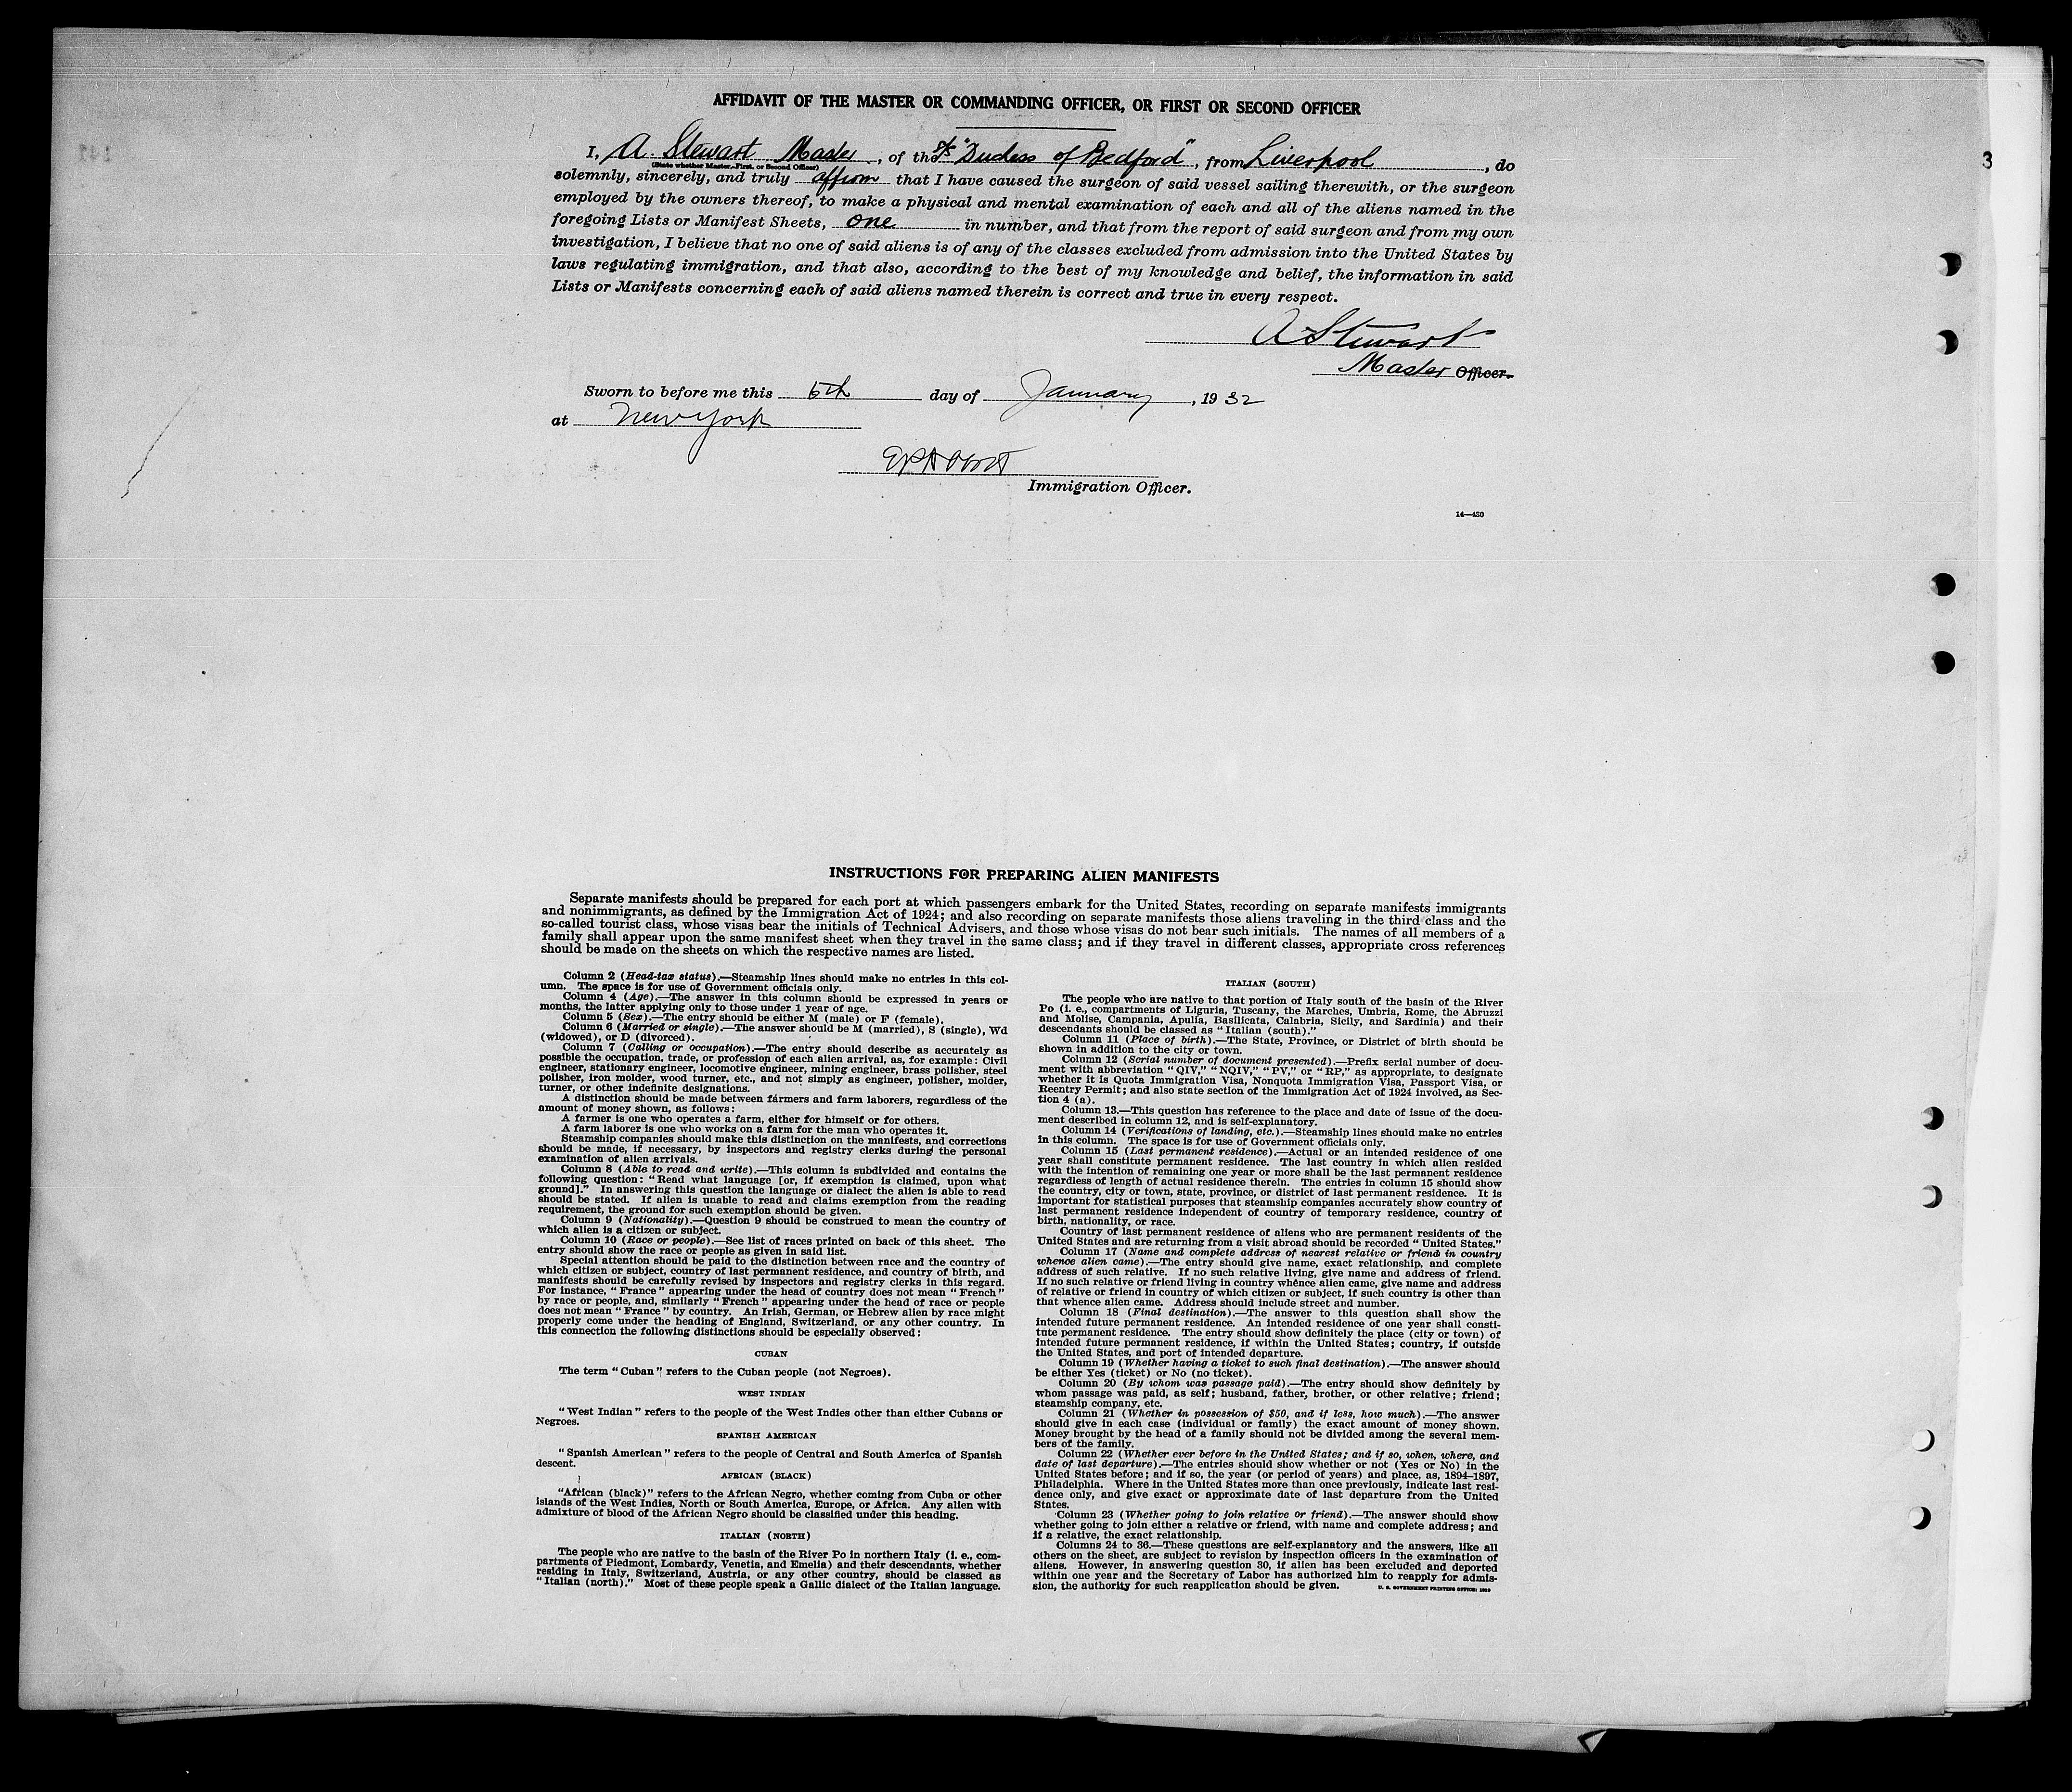 AFFIDAVIT OF THE MASTER OR COMMANDING OFFICER, OR FIRST OR SECOND OFFICER
I, A. Stewart Master, of the S/S "Duchess of Bedford", from Liverpool, do
(State whether Master, First, or Second Officer)
solemnly, sincerely, and truly affirm that I have caused the surgeon of said vessel sailing therewith, or the surgeon
employed by the owners thereof, to make a physical and mental examination of each and all of the aliens named in the
foregoing Lists or Manifest Sheets, one in number, and that from the report of said surgeon and from my own
investigation, I believe that no one of said aliens is of any of the classes excluded from admission into the United States by
laws regulating immigration, and that also, according to the best of my knowledge and belief, the information in said
Lists or Manifests concerning each of said aliens named therein is correct and true in every respect.
A Stewart
Master Officer.
Sworn to before me this 5th day of January, 1932
at New York
Immigration Officer.
14—430
3
INSTRUCTIONS FOR PREPARING ALIEN MANIFESTS
Separate manifests should be prepared for each port at which passengers embark for the United States, recording on separate manifests immigrants
and nonimmigrants, as defined by the Immigration Act of 1924; and also recording on separate manifests those aliens traveling in the third class and the
so-called tourist class, whose visas bear the initials of Technical Advisers, and those whose visas do not bear such initials. The names of all members of a
family shall appear upon the same manifest sheet when they travel in the same class; and if they travel in different classes, appropriate cross references
should be made on the sheets on which the respective names are listed.
Column 2 (Head-tax status).—Steamship lines should make no entries in this col-
umn. The space is for use of Government officials only.
Column 4 (Age).—The answer in this column should be expressed in years or
months, the latter applying only to those under 1 year of age.
Column 5 (Sex).—The entry should be either M (male) or F (female).
Column 6 (Married or single).—The answer should be M (married), S (single), Wd
(widowed), or D (divorced).
Column 7 (Calling or occupation).—The entry should describe as accurately as
possible the occupation, trade, or profession of each alien arrival, as, for example: Civil
engineer, stationary engineer, locomotive engineer, mining engineer, brass polisher, steel
polisher, iron molder, wood turner, etc., and not simply as engineer, polisher, molder,
turner, or other indefinite designations.
A distinction should be made between farmers and farm laborers, regardless of the
amount of money shown, as follows:
A farmer is one who operates a farm, either for himself or for others.
A farm laborer is one who works on a farm for the man who operates it.
Steamship companies should make this distinction on the manifests, and corrections
should be made, if necessary, by inspectors and registry clerks during the personal
examination of alien arrivals.
Column 8 (Able to read and write).—This column is subdivided and contains the
following question: "Read what language [or, if exemption is claimed, upon what
ground]." In answering this question the language or dialect the alien is able to read
should be stated. If alien is unable to read and claims exemption from the reading
requirement, the ground for such exemption should be given.
Column 9 (Nationality).—Question 9 should be construed to mean the country of
which alien is a citizen or subject.
Column 10 (Race or people).—See list of races printed on back of this sheet. The
entry should show the race or people as given in said list.
Special attention should be paid to the distinction between race and the country of
which citizen or subject, country of last permanent residence, and country of birth, and
manifests should be carefully revised by inspectors and registry clerks in this regard.
For instance, "France" appearing under the head of country does not mean "French"
by race or people, and, similarly "French" appearing under the head of race or people
does not mean "France" by country. An Irish, German, or Hebrew alien by race might
properly come under the heading of England, Switzerland, or any other country. In
this connection the following distinctions should be especially observed:
CUBAN
The term "Cuban" refers to the Cuban people (not Negroes).
WEST INDIAN
"West Indian" refers to the people of the West Indies other than either Cubans or
Negroes.
SPANISH AMERICAN
"Spanish American" refers to the people of Central and South America of Spanish
descent.
AFRICAN (BLACK)
"African (black)" refers to the African Negro, whether coming from Cuba or other
islands of the West Indies, North or South America, Europe, or Africa. Any alien with
admixture of blood of the African Negro should be classified under this heading.
ITALIAN (NORTH)
The people who are native to the basin of the River Po in northern Italy (i. e., com-
partments of Piedmont, Lombardy, Venetia, and Emelia) and their descendants, whether
residing in Italy, Switzerland, Austria, or any other country, should be classed as
"Italian (north)." Most of these people speak a Gallic dialect of the Italian language.
ITALIAN (SOUTH)
The people who are native to that portion of Italy south of the basin of the River
Po (i. e., compartments of Liguria, Tuscany, the Marches, Umbria, Rome, the Abruzzi
and Molise, Campania, Apulia, Basilicata, Calabria, Sicily, and Sardinia) and their
descendants should be classed as "Italian (south)."
Column 11 (Place of birth).—The State, Province, or District of birth should be
shown in addition to the city or town.
Column 12 (Serial number of document presented).—Prefix serial number of docu-
ment with abbreviation "QIV," "NQIV," "PV," or "RP," as appropriate, to designate
whether it is Quota Immigration Visa, Nonquota Immigration Visa, Passport Visa, or
Reentry Permit; and also state section of the Immigration Act of 1924 involved, as Sec-
tion 4 (a).
Column 13.—This question has reference to the place and date of issue of the docu-
ment described in column 12, and is self-explanatory.
Column 14 (Verifications of landing, etc.).—Steamship lines should make no entries
in this column. The space is for use of Government officials only.
Column 15 (Last permanent residence).—Actual or an intended residence of one
year shall constitute permanent residence. The last country in which alien resided
with the intention of remaining one year or more shall be the last permanent residence
regardless of length of actual residence therein. The entries in column 15 should show
the country, city or town, state, province, or district of last permanent residence. It is
important for statistical purposes that steamship companies accurately show country of
last permanent residence independent of country of temporary residence, country of
birth, nationality, or race.
Country of last permanent residence of aliens who are permanent residents of the
United States and are returning from a visit abroad should be recorded "United States."
Column 17 (Name and complete address of nearest relative or friend in country
whence alien came).—The entry should give name, exact relationship, and complete
address of such relative. If no such relative living, give name and address of friend.
If no such relative or friend living in country whence alien came, give name and address
of relative or friend in country of which citizen or subject, if such country is other than
that whence alien came. Address should include street and number.
Column 18 (Final destination).—The answer to this question shall show the
intended future permanent residence. An intended residence of one year shall consti-
tute permanent residence. The entry should show definitely the place (city or town) of
intended future permanent residence, if within the United States; country, if outside
the United States, and port of intended departure.
Column 19 (Whether having a ticket to such final destination).—The answer should
be either Yes (ticket) or No (no ticket).
Column 20 (By whom was passage paid).—The entry should show definitely by
whom passage was paid, as self; husband, father, brother, or other relative; friend;
steamship company, etc.
Column 21 (Whether in possession of $50, and if less, how much).—The answer
should give in each case (individual or family) the exact amount of money shown.
Money brought by the head of a family should not be divided among the several mem-
bers of the family.
Column 22 (Whether ever before in the United States; and if so, when, where, and
date of last departure).—The entries should show whether or not (Yes or No) in the
United States before; and if so, the year (or period of years) and place, as, 1894–1897,
Philadelphia. Where in the United States more than once previously, indicate last resi-
dence only, and give exact or approximate date of last departure from the United
States.
Column 23 (Whether going to join relative or friend).—The answer should show
whether going to join either a relative or friend, with name and complete address; and
if a relative, the exact relationship.
Columns 24 to 36.—These questions are self-explanatory and the answers, like all
others on the sheet, are subject to revision by inspection officers in the examination of
aliens. However, in answering question 30, if alien has been excluded and deported
within one year and the Secretary of Labor has authorized him to reapply for admis-
sion, the authority for such reapplication should be given.
U. S. GOVERNMENT PRINTING OFFICE: